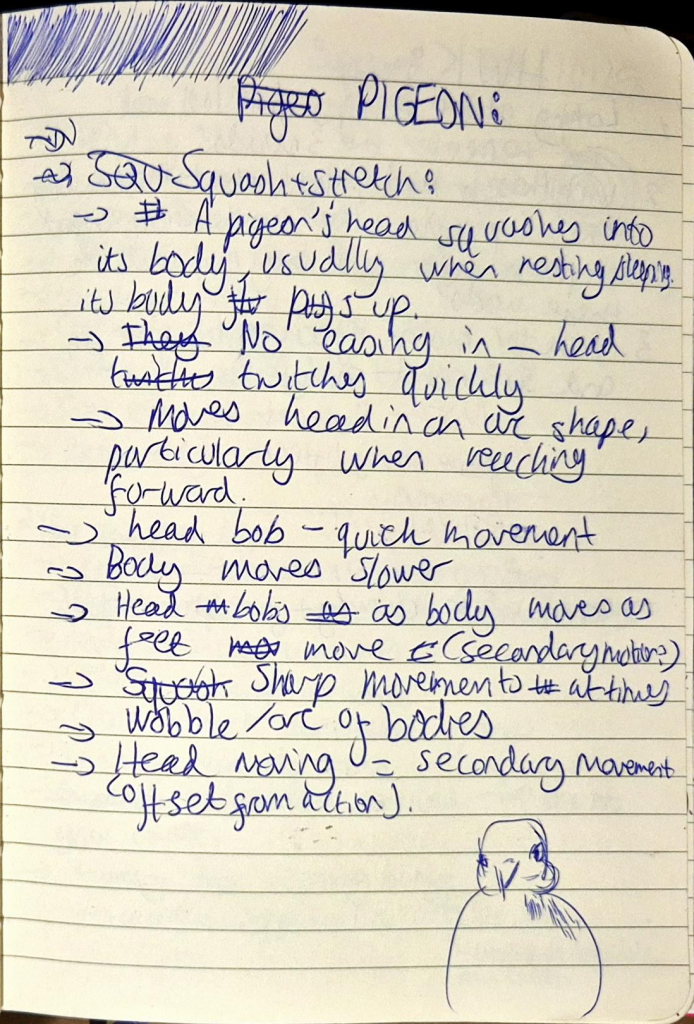 Pigeo PIGEON:
→ SQU Squash+stretch:
→ A pigeon's head squashes into
its body, usually when resting/sleeping.
its body puffs up.
→ They No easing in – head
twitches twitches quickly
→ Moves head in an arc shape,
particularly when reaching
forward.
→ head bob – quick movement
→ Body moves slower
→ Head m bobs as as body moves as
feet mo move (secondary motion?)
→ Squash Sharp movements at times
→ Wobble/arc of bodies
→ Head moving = secondary movement
(offset from action).